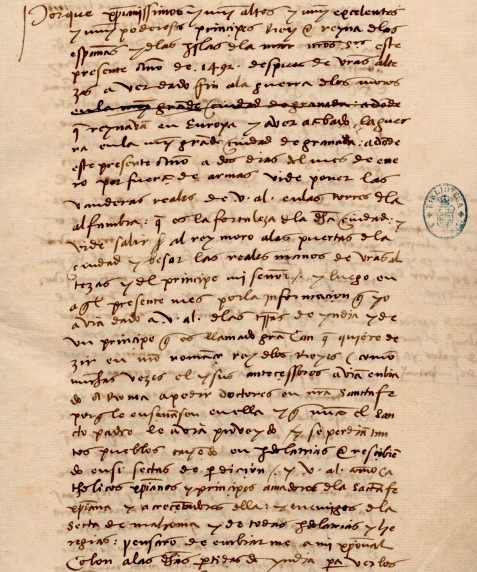 Porque xpianissimos y muy altos y muy excelentes
y muy poderosos principes Rey e reyna delas
españas y delas yslas dela mar nros sres este
presente Año de .1492. despues de vras alte
zas aver dado fin ala guerra delos moros
en la muy grãde ciudad de granada: adonde
q reynavã en Europa y aver acabado la guer
ra en la muy grãde ciudad de granada: adõde
este presente Año a dos dias del mes de ene
ro por fuerça de armas vide poner las
vanderas reales de .v. al. en las torres dla
alfambra: q es la fortaleza dela dha ciudad: y
vide salir al rey moro alas puertas dela
ciudad y besar las reales manos de vras al
tezas y del principe mi señor: y luego en
aql presente mes por la informacion q yo
avia dado a .v. al. delas trras de yndia y de
un principe q es llamado grã Can q quiere de
zir en nro romançe rey delos Reyes como
muchas vezes el y sus antecessores aviã enbia
do a Roma a pedir doctores en nra sancta fe
porq le enseñasen en ella y q nunca el san
cto padre le avia proveydo y se perdian tan
tos pueblos cayedo en ydolatrias e resçibien
do en si sectas de perdicion: y .v. al. como ca
tholicos xpianos y principes amadores dela sancta fe
xpiana y acreçentadores della: y enemigos dela
secta de mahoma y de todas ydolatrias y he
regias: pensarõ de embiarme a mi xpoual
Colon alas dhas ptidas de yndia pa ver los
BIBLIOTECA